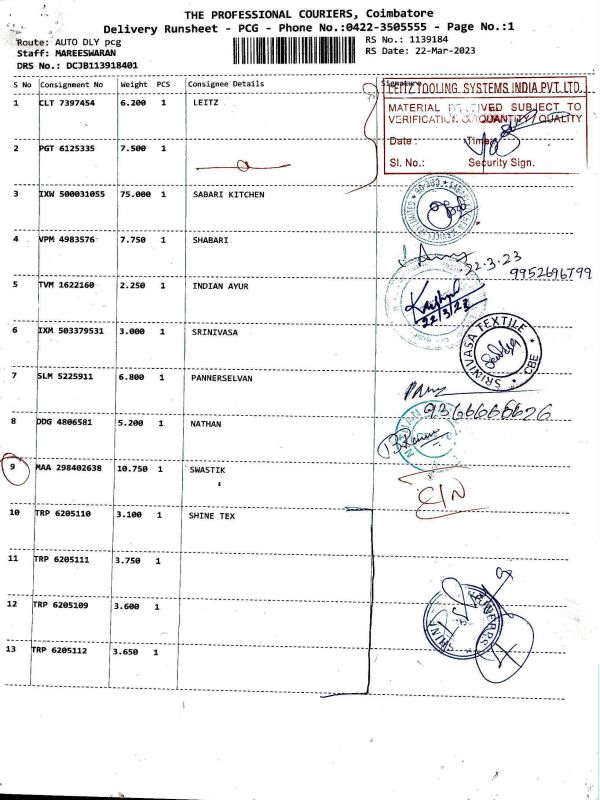 THE PROFESSIONAL COURIERS, Coimbatore
Delivery Runsheet - PCG - Phone No.:0422-3505555 - Page No.:1
Route: AUTO DLY pcg
RS No.: 1139184
Staff: MAREESWARAN
RS Date: 22-Mar-2023
DRS No.: DCJB113918401
S No Consignment No Weight PCS Consignee Details Signature
1 CLT 7397454 6.200 1 LEITZ
LEITZ TOOLING SYSTEMS INDIA PVT. LTD.
MATERIAL RECEIVED SUBJECT TO
VERIFICATION QUANTITY / QUALITY
Date : Time:
Sl. No.: Security Sign.
2 PGT 6125335 7.500 1
3 IXW 500031055 75.000 1 SABARI KITCHEN
4 VPM 4983576 7.750 1 SHABARI
22.3.23
9952696799
5 TVM 1622160 2.250 1 INDIAN AYUR
22/3/23
6 IXM 503379531 3.000 1 SRINIVASA
SRINIVASA TEXTILE
* CBE *
7 SLM 5225911 6.800 1 PANNERSELVAN
9366666626
8 DDG 4806581 5.200 1 NATHAN
9 MAA 298402638 10.750 1 SWASTIK
C/N
10 TRP 6205110 3.100 1 SHINE TEX
11 TRP 6205111 3.750 1
12 TRP 6205109 3.600 1
13 TRP 6205112 3.650 1